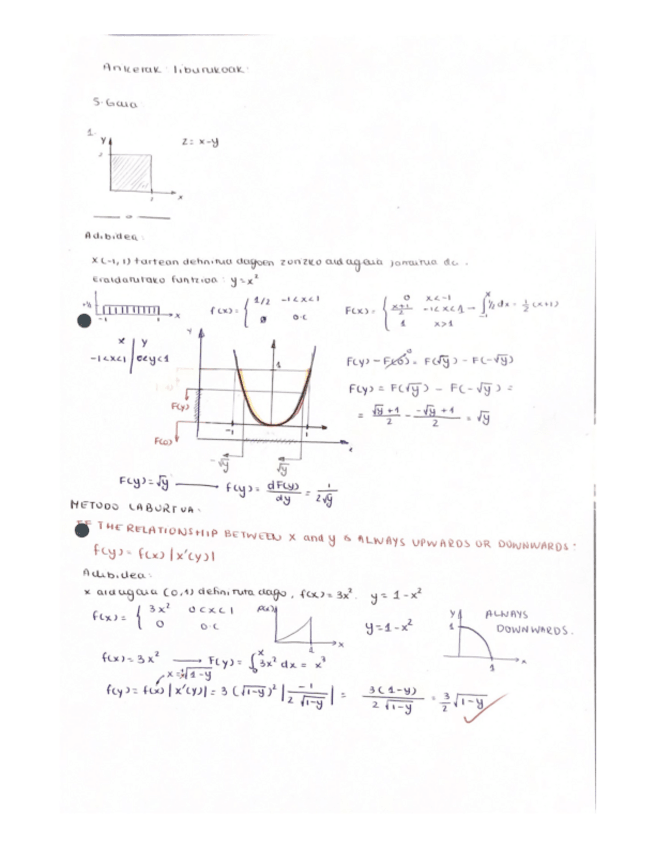 Ariketak liburukoak:
5. Gaia
1.
y
z = x-y
1
x
Adibidea:
x (-1, 1) tartean definitua dagoen zorizko aldagaia jarraitua da.
Eraldatutako funtzioa: y = x²
+½
-1 1 x
f(x) = { 1/2 -1<x<1
0 o.c
F(x) = { 0 x<-1
(x+1)/2 -1<x<1 → ∫₋₁ˣ ½ dx = ½ (x+1)
1 x>1
x | y
-1<x<1 | 0<y<1
y
1
F(y)
F(0)
-1 1
x
-√y √y
F(y) - F(0)⁰ = F(√y) - F(-√y)
F(y) = F(√y) - F(-√y) =
= (√y+1)/2 - (-√y+1)/2 = √y
F(y) = √y → f(y) = dF(y)/dy = 1/(2√y)
METODO LABURTUA.
IF THE RELATIONSHIP BETWEEN x and y is ALWAYS UPWARDS OR DOWNWARDS:
f(y) = f(x) |x'(y)|
Adibidea:
x aldagaia (0,1) definituta dago, f(x) = 3x². y = 1-x²
f(x) = { 3x² 0<x<1
0 o.c
f(x)
1 x
y = 1-x²
y
1
1 x
ALWAYS
DOWNWARDS.
f(x) = 3x² → F(y) = ∫₀ˣ 3x² dx = x³
x = √1-y
f(y) = f(x) |x'(y)| = 3(√1-y)² |-1/(2√1-y)| = 3(1-y)/(2√1-y) = 3/2 √1-y